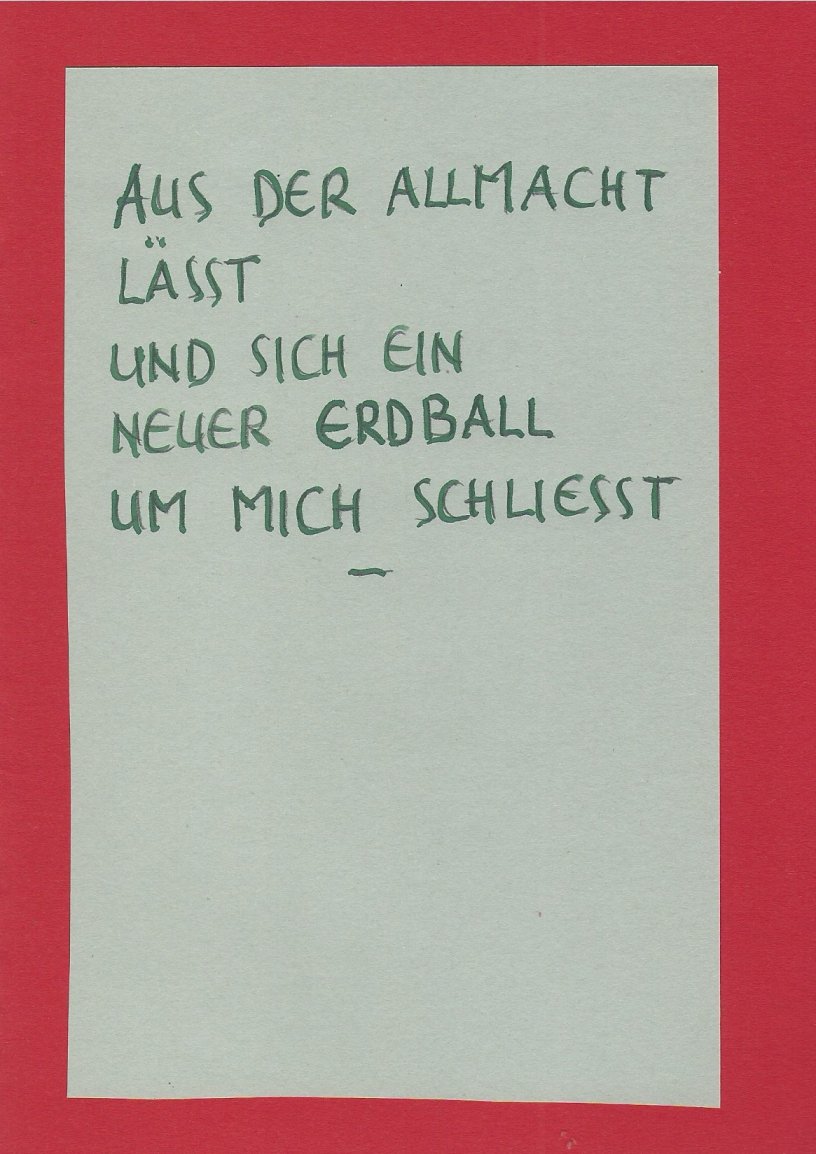 AUS DER ALLMACHT
LÄSST
UND SICH EIN
NEUER ERDBALL
UM MICH SCHLIESST
—